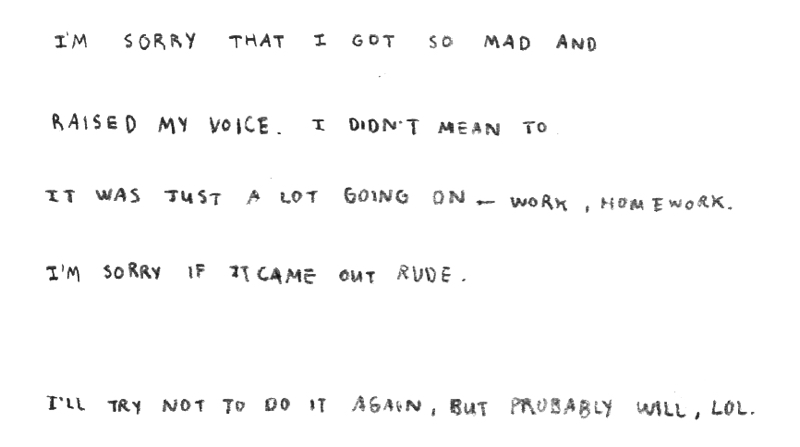 I'M SORRY THAT I GOT SO MAD AND
RAISED MY VOICE. I DIDN'T MEAN TO
IT WAS JUST A LOT GOING ON – WORK, HOMEWORK.
I'M SORRY IF IT CAME OUT RUDE.
I'LL TRY NOT TO DO IT AGAIN, BUT PROBABLY WILL, LOL.